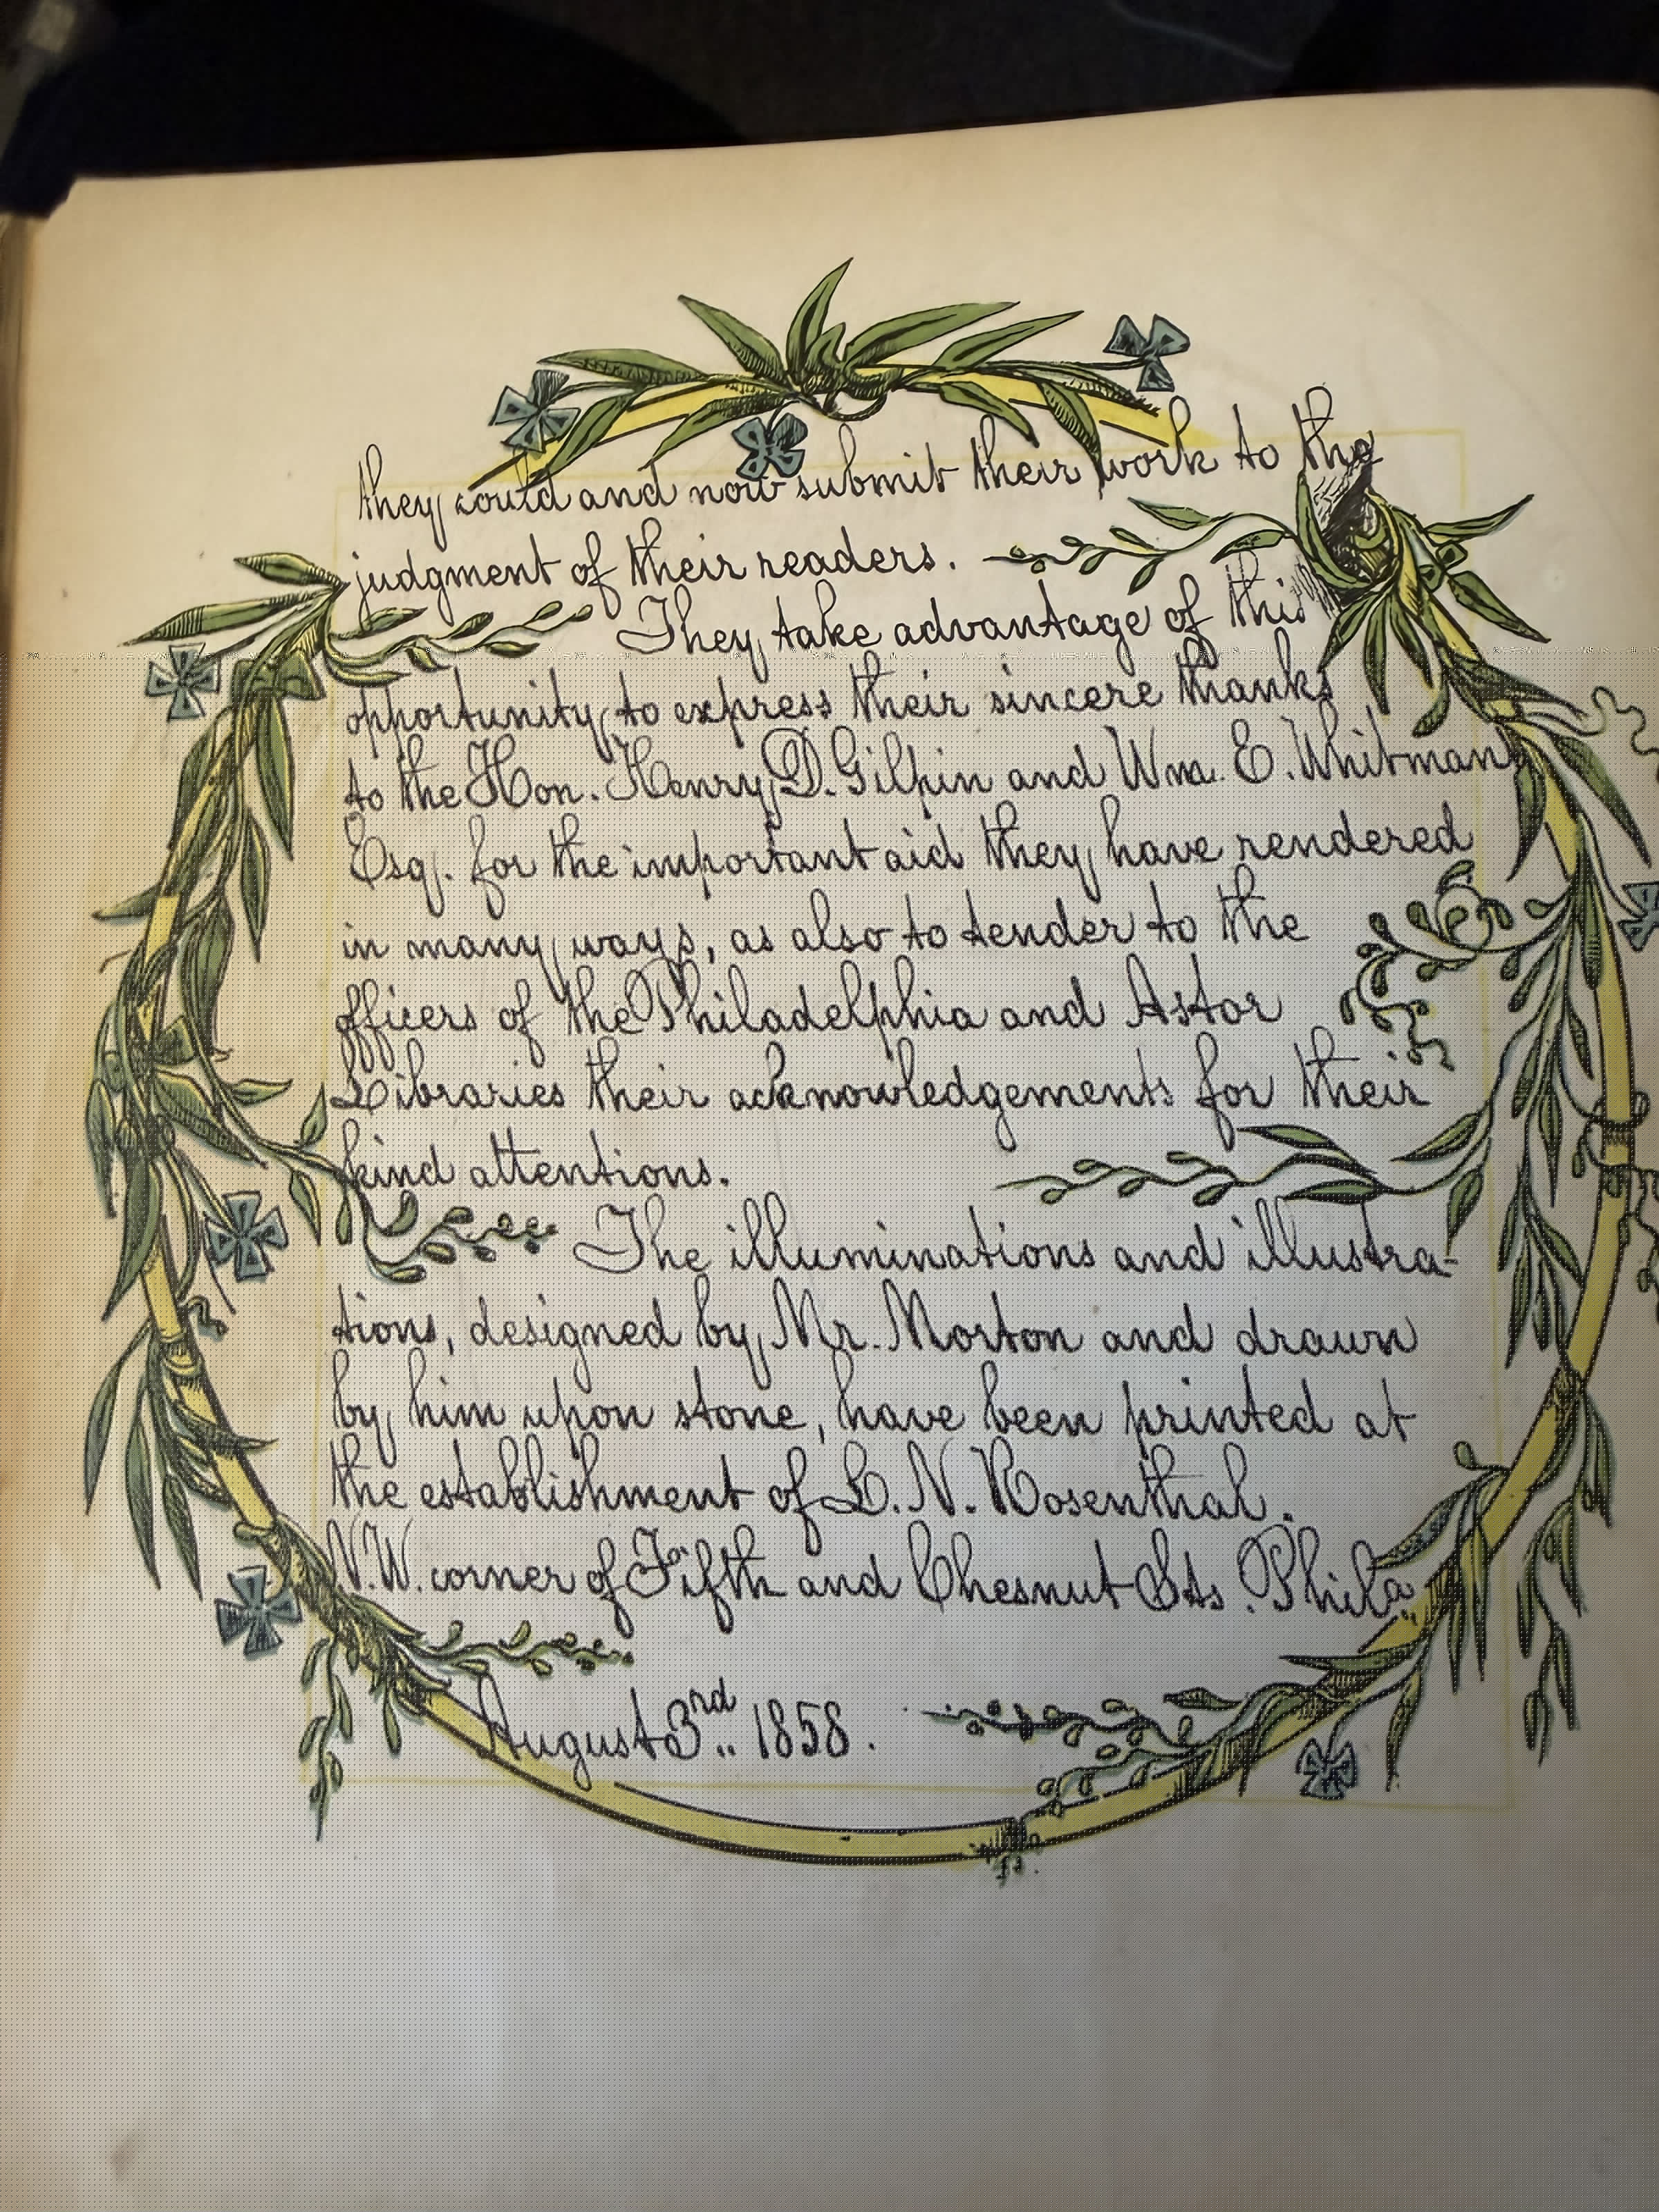 they could and now submit their work to the
judgment of their readers.
They take advantage of this
opportunity to express their sincere thanks
to the Hon. Henry D. Gilpin and Wm. E. Whitman
Esq. for the important aid they have rendered
in many ways, as also to tender to the
officers of the Philadelphia and Astor
Libraries their acknowledgements for their
kind attentions.
The illuminations and illustra-
tions, designed by Mr. Morton and drawn
by him upon stone, have been printed at
the establishment of L. N. Rosenthal.
N.W. corner of Fifth and Chesnut Sts. Phila
August 3rd 1858.